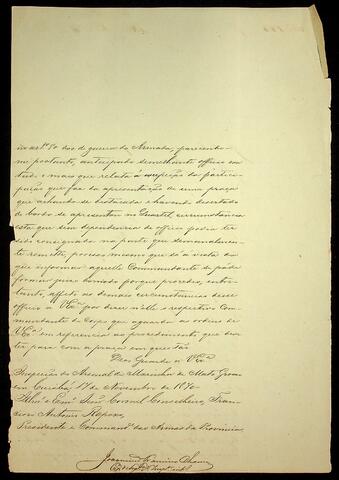 do art.º 50 dos de guerra da Armada, parecendo-
me portanto, antecipado semelhante officio con
tudo e mais que relata á excepção da partici-
pação que faz da apresentação de uma praça
que achando-se destacada e havendo desertado
de bordo se apresentou no Quartel, circunstancia
esta que sem dependencia de officio podia ter
sido consignada na parte que semanalmente
remette, por isso mesmo que só á vista do
que informar aquelle Commandante se pode
formar juizo porque procedeo, entre-
tanto, affecto as demais circunstancias desse
officio a VExª por dizer n'elle o respectivo Com-
mandante do Corpo que aguarda as ordens de
VExª em referencia ao procedimento que deve
ter para com a praça em questão
Deos Guarde a VExª
Inspecção do Arsenal de Marinha de Mato Gros-
so em Cuiabá, 17 de Novembro de 1870
Illmº e Exmº Senr. Coronel Conselheiro, Fran-
cisco Antonio Raposo,
Presidente e Commandº das Armas da Provincia.
Joaquim Francisco